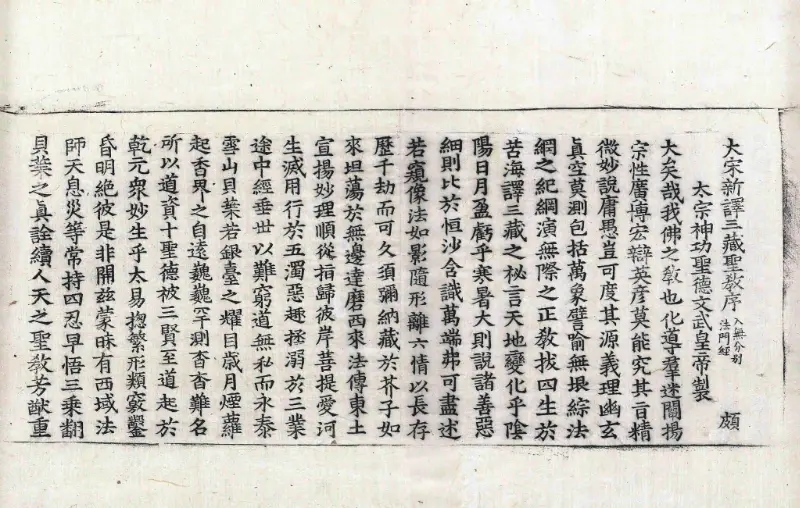 大宋新譯三藏聖教序 入無分別法門經
太宗神功聖德文武皇帝製 頗
大矣哉我佛之教也化導羣迷闡揚
宗性廣博宏辯英彦莫能究其㫖精
微妙說庸愚豈可度其源義理幽玄
真空莫測包括萬象譬喻無垠綜法
網之紀綱演無際之正教拔四生於
苦海譯三藏之秘言天地變化乎陰
陽日月盈虧乎寒暑大則說諸善惡
細則比於恒沙含識萬端弗可盡述
若窺像法如影隨形離六情以長存
歷千劫而可久須彌納藏於芥子如
來坦蕩於無邊達磨西來法傳東土
宣揚妙理順從指歸彼岸菩提愛河
生滅用行於五濁惡趣拯溺於三業
途中經垂世以難窮道無私而永泰
雪山貝葉若銀臺之耀目歲月煙蘿
起香界之自遠巍巍罕測杳杳難名
所以道資十聖德被三賢至道起於
乾元衆妙生乎太易揔繁形類竅鑿
昏明絶彼是非開兹蒙昧有西域法
師天息災等常持四忍早悟三乘翻
貝葉之真詮續人天之聖教芳猷重